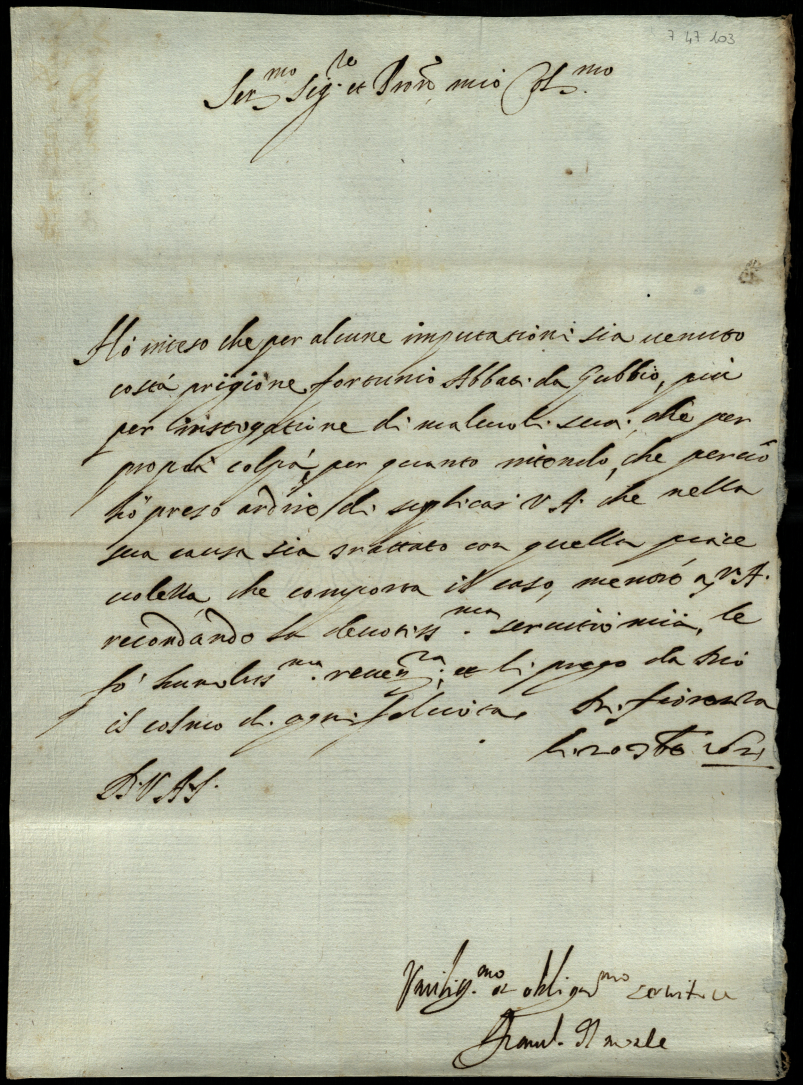 7 47 103
Ser.mo Sig.re et Pron mio Col.mo
Hò inteso che per alcune imputationi sia venuto
costà prigione fortunio Abbati da Gubbio, più
per instogatione di malevoli suoi, che per
propria colpa, per quanto intendo, che perciò
hò preso ardire di suplicar V A. che nella
sua causa sia trattato con quella piace
volezza che comporta il caso, mentre a V. A.
recordando la devotiss.ma servitù mia, le
fò humiliss.ma reveren.za, et li prego da Dio
il colmo di ogni felicità. Di fiorenza
li 20 7bre 1621
D. V. A. S.
Humiliss.mo et obligat.mo servitore